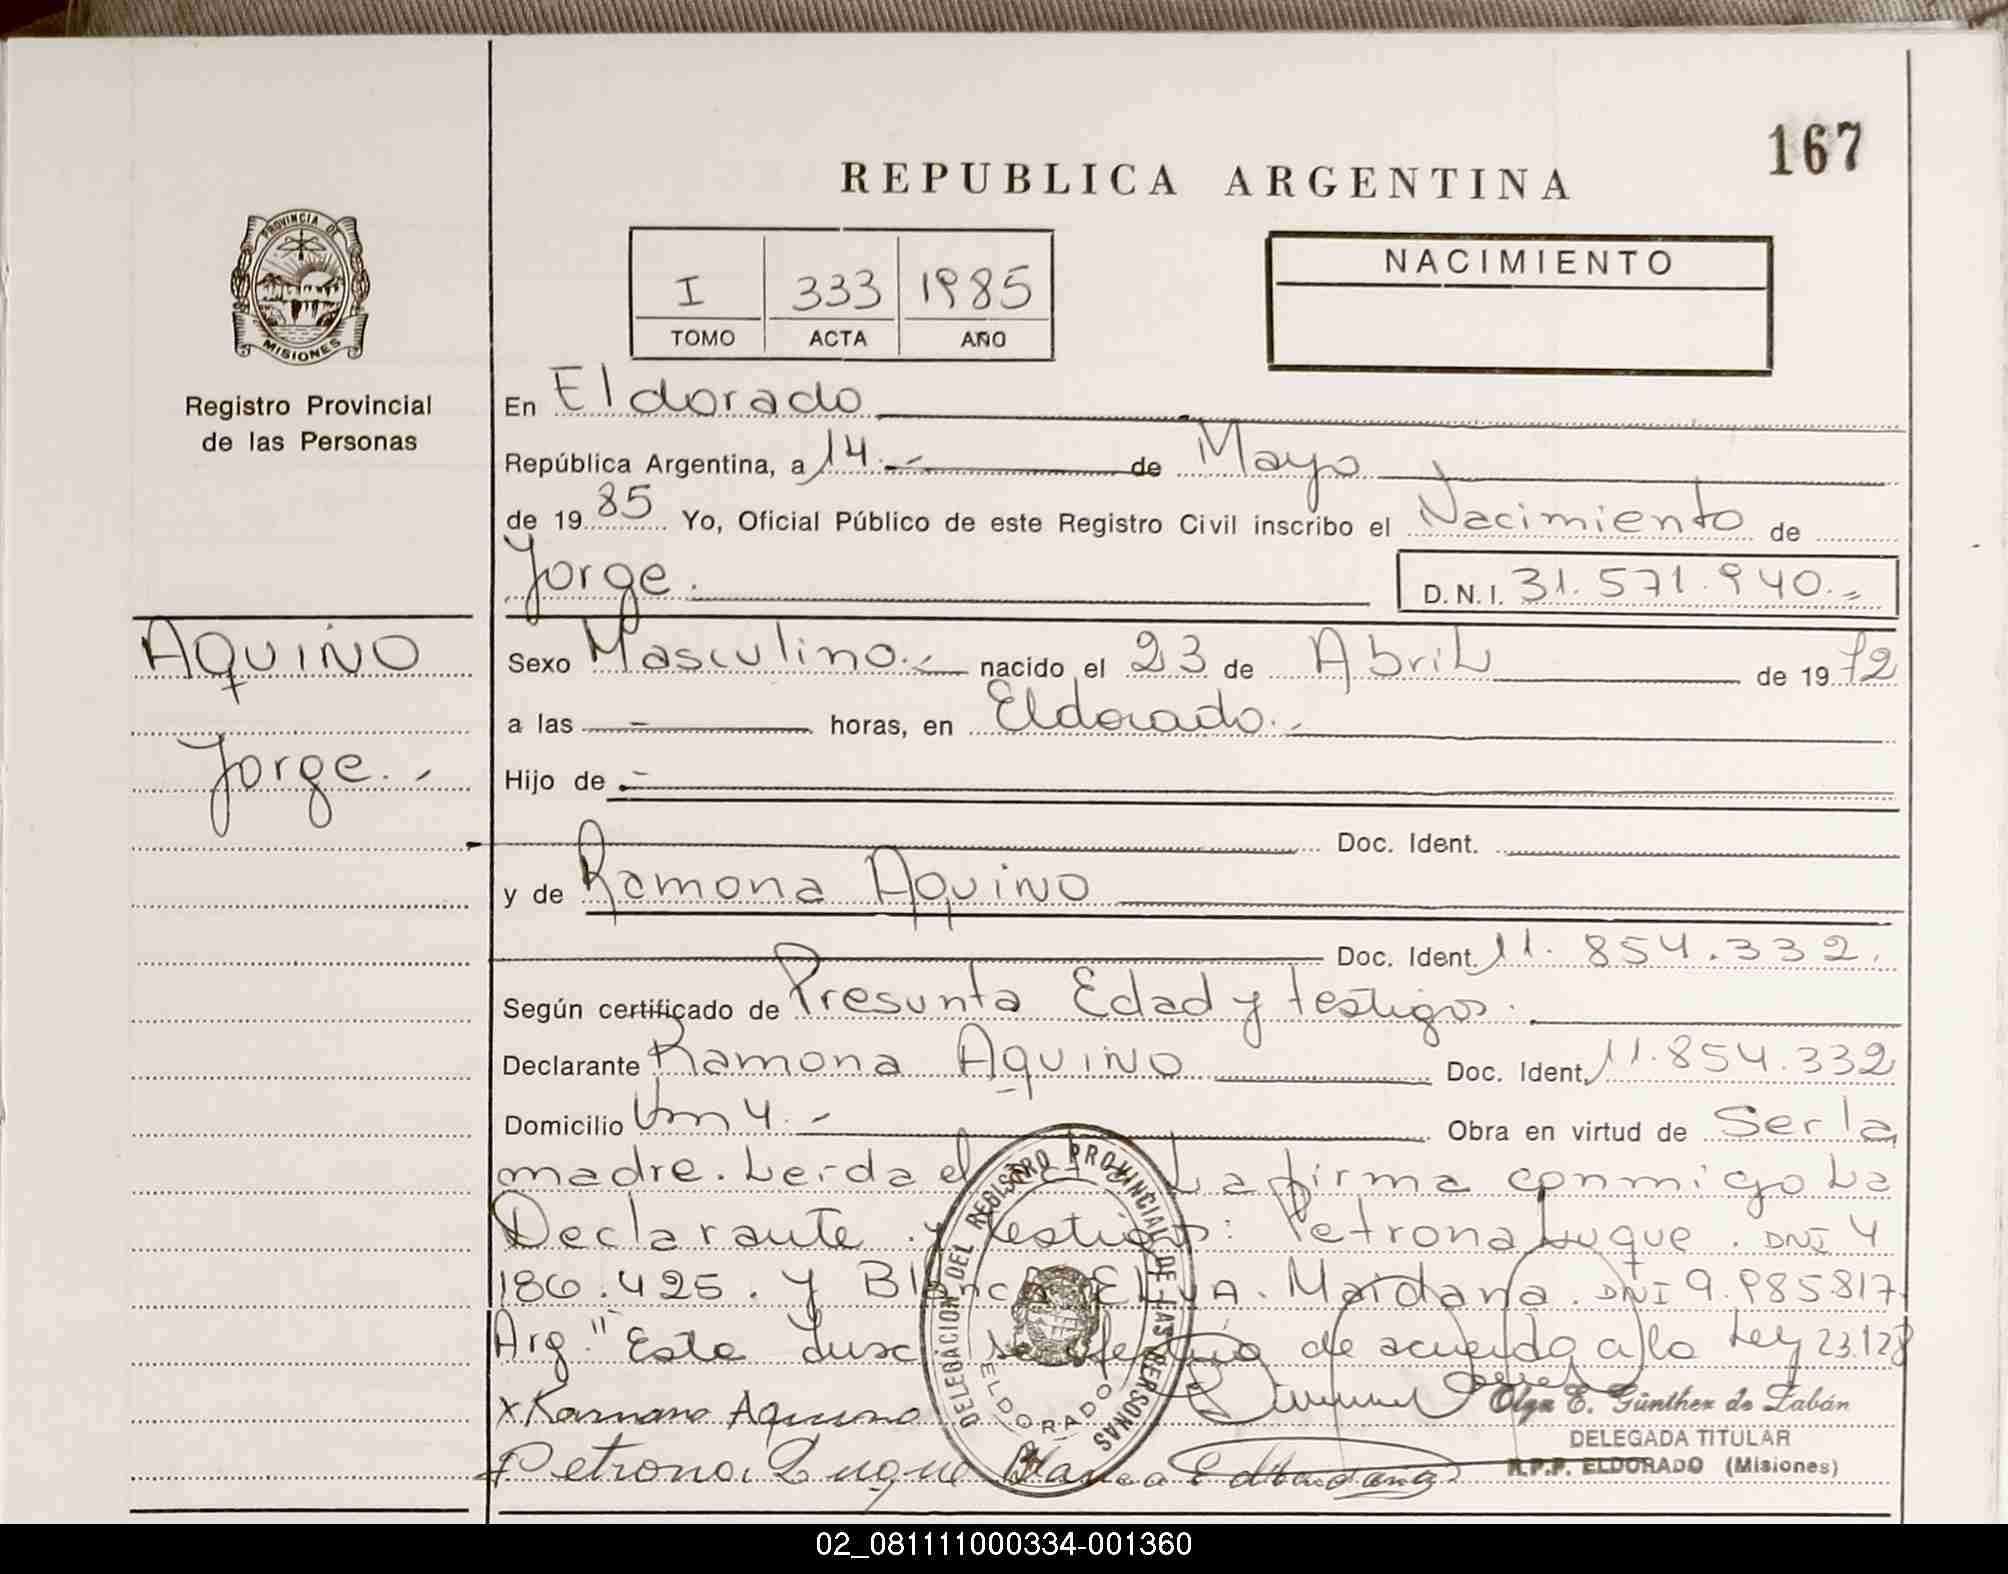 167
REPUBLICA ARGENTINA
PROVINCIA DE
MISIONES
Registro Provincial
de las Personas
I 333 1985
TOMO ACTA AÑO
NACIMIENTO
En Eldorado
República Argentina, a 14.- de Mayo
de 1985 Yo, Oficial Público de este Registro Civil inscribo el Nacimiento de
Jorge. D.N.I. 31.571.940.=
AQUINO
Jorge.-
Sexo Masculino.- nacido el 23 de Abril de 1972
a las - horas, en Eldorado.-
Hijo de .-
Doc. Ident.
y de Ramona Aquino
Doc. Ident. 11.854.332.
Según certificado de Presunta Edad y testigos.
Declarante Ramona Aquino Doc. Ident. 11.854.332
Domicilio Km 4.- Obra en virtud de Ser la
madre. Leida el La firma conmigo La
Declarante y testigos: Petrona Luque. DNI 4
186.425. y Blanca Elva. Mardana. DNI 9.985.817
Arg. "Esta se de acuerdo a la Ley 23.128
x Ramona Aquino
Petrona Luque Blanca E
DELEGACION DEL REGISTRO PROVINCIAL DE LAS PERSONAS
ELDORADO
Olga E. Günther de Zabán
DELEGADA TITULAR
R.P.P. ELDORADO (Misiones)
02_081111000334-001360